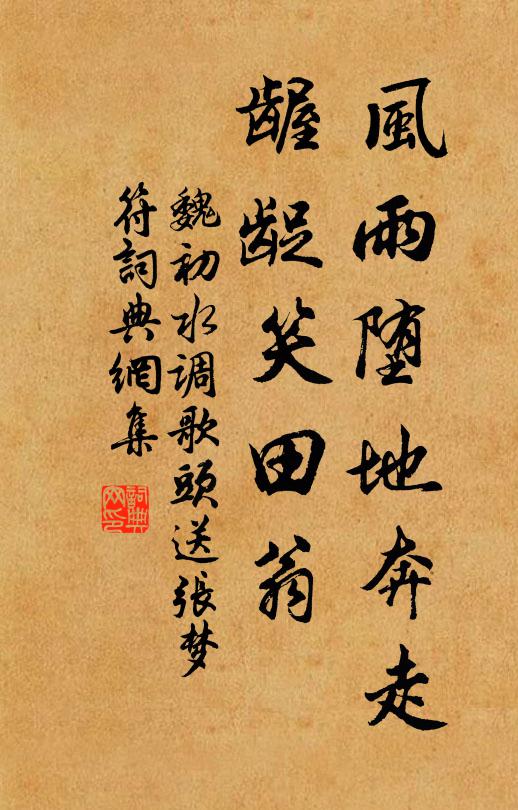 風雨堕地奔走
齷齪笑田翁
魏初水调歌頭送張梦
符詞典網集
詞典网印